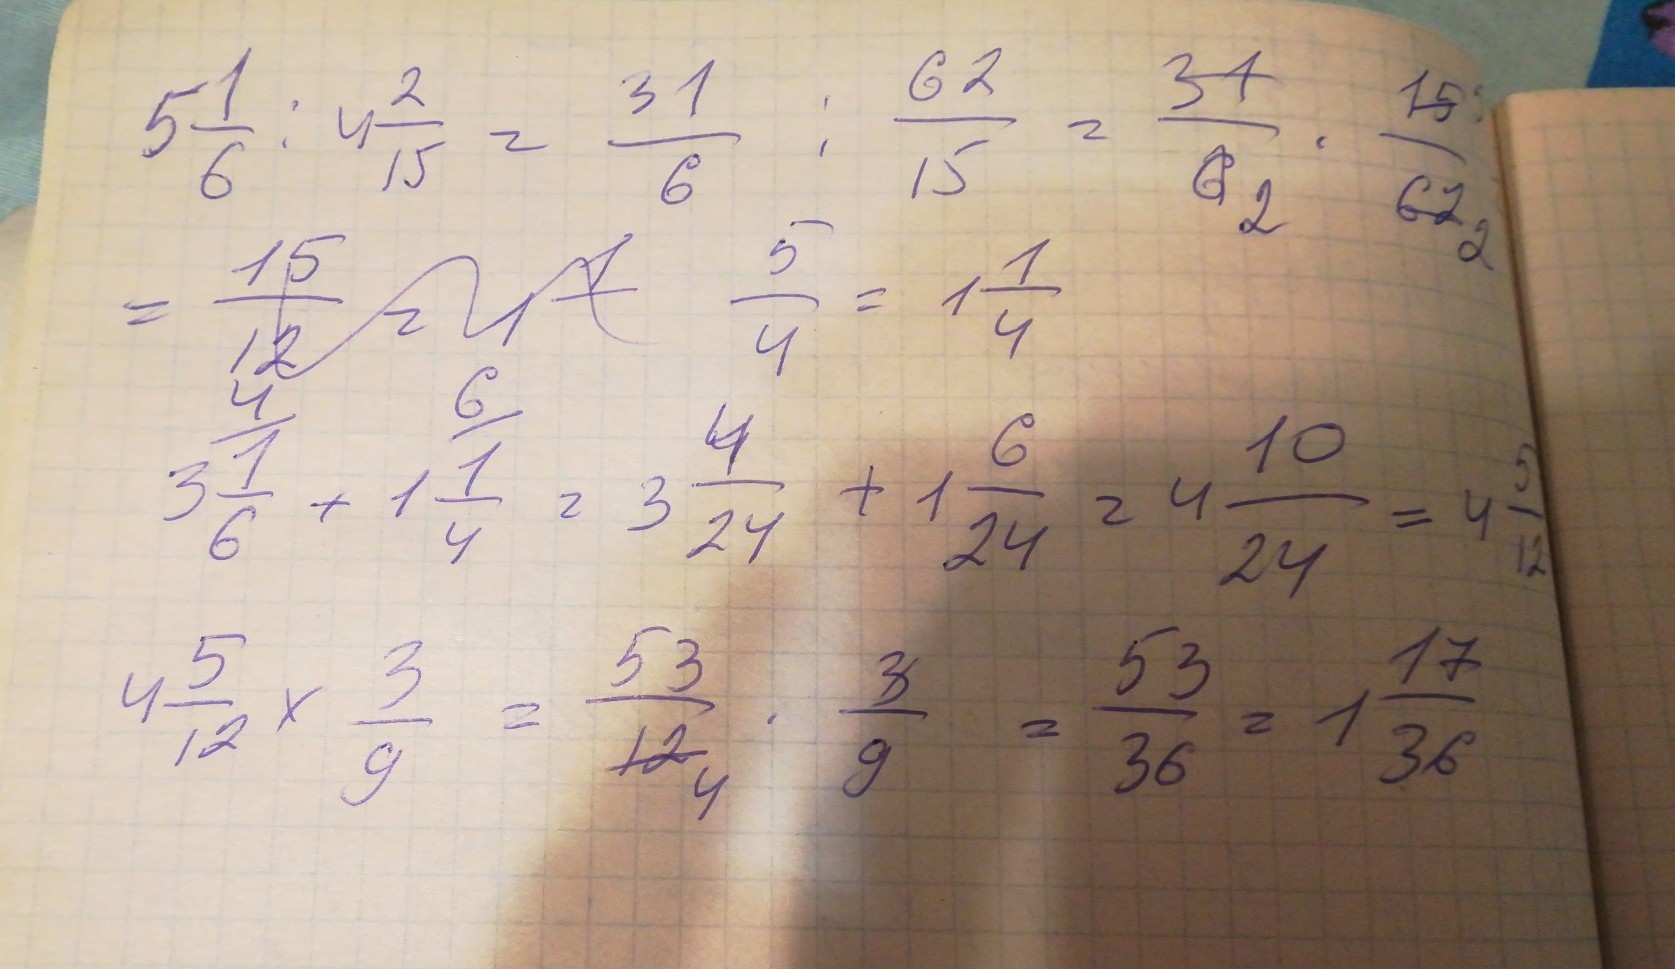 5 1/6 : 4 2/15 = 31/6 : 62/15 = 31/6 2 · 15/62 2
= 15/12 = 1 5/4 = 1 1/4
4/ 6/
3 1/6 + 1 1/4 = 3 4/24 + 1 6/24 = 4 10/24 = 4 5/12
4 5/12 x 3/9 = 53/12 4 · 3/9 = 53/36 = 1 17/36